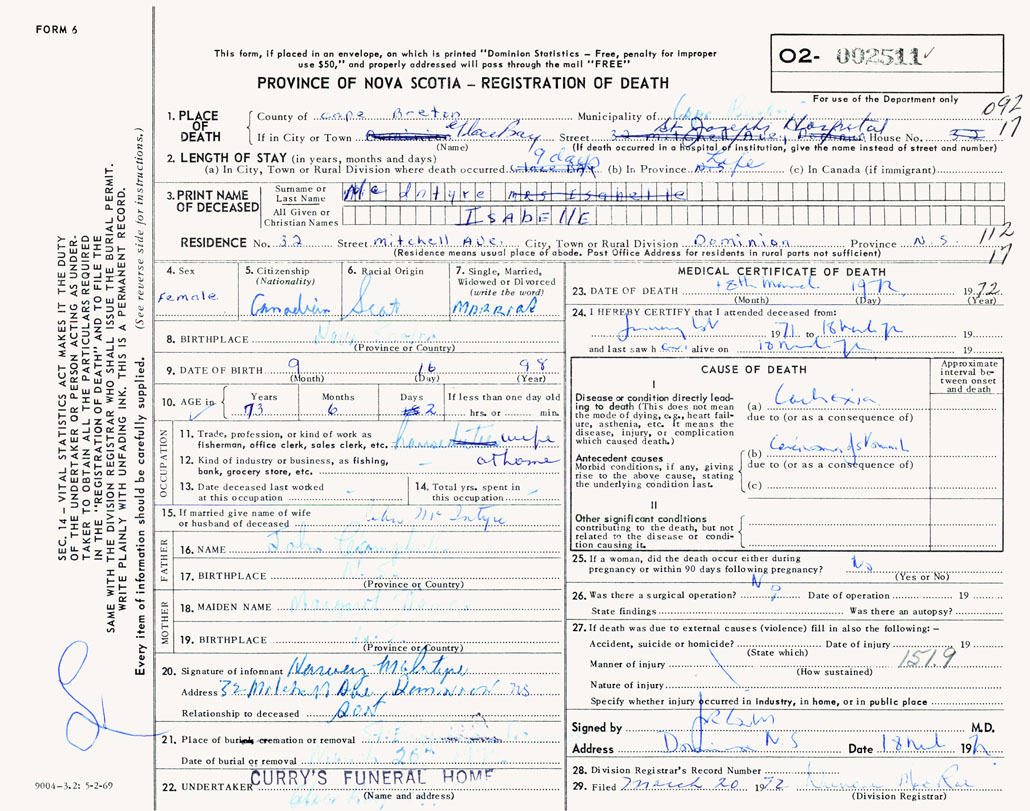 FORM 6
This form, if placed in an envelope, on which is printed "Dominion Statistics – Free, penalty for improper
use $50," and properly addressed will pass through the mail "FREE"
PROVINCE OF NOVA SCOTIA – REGISTRATION OF DEATH
O2- 002511
For use of the Department only
092
17
1. PLACE OF DEATH
County of Cape Breton Municipality of Cape Breton
If in City or Town Dominion Glace Bay Street 32 Mitchell Ave, Dominion St Josephs Hospital House No. 32
(Name) (If death occurred in a hospital or institution, give the name instead of street and number)
2. LENGTH OF STAY (in years, months and days)
(a) In City, Town or Rural Division where death occurred Glace Bay 9 days (b) In Province N.S. Life (c) In Canada (if immigrant)
3. PRINT NAME OF DECEASED
Surname or Last Name Mc Intyre Mrs Isabelle
All Given or Christian Names ISAbEllE
RESIDENCE No. 32 Street Mitchell Ave. City, Town or Rural Division Dominion Province N.S.
112
17
(Residence means usual place of abode. Post Office Address for residents in rural parts not sufficient)
4. Sex
Female
5. Citizenship
(Nationality)
Canadian
6. Racial Origin
Scot
7. Single, Married,
Widowed or Divorced
(write the word)
MARRIED
8. BIRTHPLACE Nova Scotia
(Province or Country)
9. DATE OF BIRTH 9 16 98
(Month) (Day) (Year)
10. AGE in Years Months Days If less than one day old
73 6 2 hrs. or min.
OCCUPATION
11. Trade, profession, or kind of work as
fisherman, office clerk, sales clerk, etc. house wife
12. Kind of industry or business, as fishing,
bank, grocery store, etc. at home
13. Date deceased last worked
at this occupation
14. Total yrs. spent in
this occupation
15. If married give name of wife
or husband of deceased John McIntyre
FATHER
16. NAME John Campbell
17. BIRTHPLACE N.S.
(Province or Country)
MOTHER
18. MAIDEN NAME Margaret
19. BIRTHPLACE
(Province or Country)
20. Signature of informant McIntyre
Address 32 Mitchell Ave, Dominion NS
Relationship to deceased son
21. Place of burial, cremation or removal
Date of burial or removal March 20th
22. UNDERTAKER CURRY'S FUNERAL HOME
(Name and address)
Glace Bay
MEDICAL CERTIFICATE OF DEATH
23. DATE OF DEATH 18th March 1972 1972
(Month) (Day) (Year)
24. I HEREBY CERTIFY that I attended deceased from:
January 1st 1971 to 18 March 72 19
and last saw her alive on 18 March 72 19
CAUSE OF DEATH
Approximate
interval be-
tween onset
and death
I
Disease or condition directly lead-
ing to death (This does not mean
the mode of dying, e.g., heart fail-
ure, asthenia, etc. It means the
disease, injury, or complication
which caused death.)
(a) Cachexia
due to (or as a consequence of)
Antecedent causes
Morbid conditions, if any, giving
rise to the above cause, stating
the underlying condition last.
(b) Carcinoma of Stomach
due to (or as a consequence of)
(c)
II
Other significant conditions
contributing to the death, but not
related to the disease or condi-
tion causing it.
25. If a woman, did the death occur either during
pregnancy or within 90 days following pregnancy? No
(Yes or No)
26. Was there a surgical operation? No Date of operation 19
State findings Was there an autopsy?
27. If death was due to external causes (violence) fill in also the following: –
Accident, suicide or homicide? Date of injury 19
(State which)
Manner of injury 151.9
(How sustained)
Nature of injury
Specify whether injury occurred in industry, in home, or in public place
Signed by M.D.
Address Dominion N.S Date 18 March 1972
28. Division Registrar's Record Number
29. Filed March 20 1972 MacRae
(Division Registrar)
SEC. 14 – VITAL STATISTICS ACT MAKES IT THE DUTY
OF THE UNDERTAKER OR PERSON ACTING AS UNDER-
TAKER TO OBTAIN ALL THE PARTICULARS REQUIRED
IN THE "REGISTRATION OF DEATH" AND TO FILE THE
SAME WITH THE DIVISION REGISTRAR WHO SHALL ISSUE THE BURIAL PERMIT.
WRITE PLAINLY WITH UNFADING INK. THIS IS A PERMANENT RECORD.
Every item of information should be carefully supplied. (See reverse side for instructions.)
9004–3.2: 5-2-69